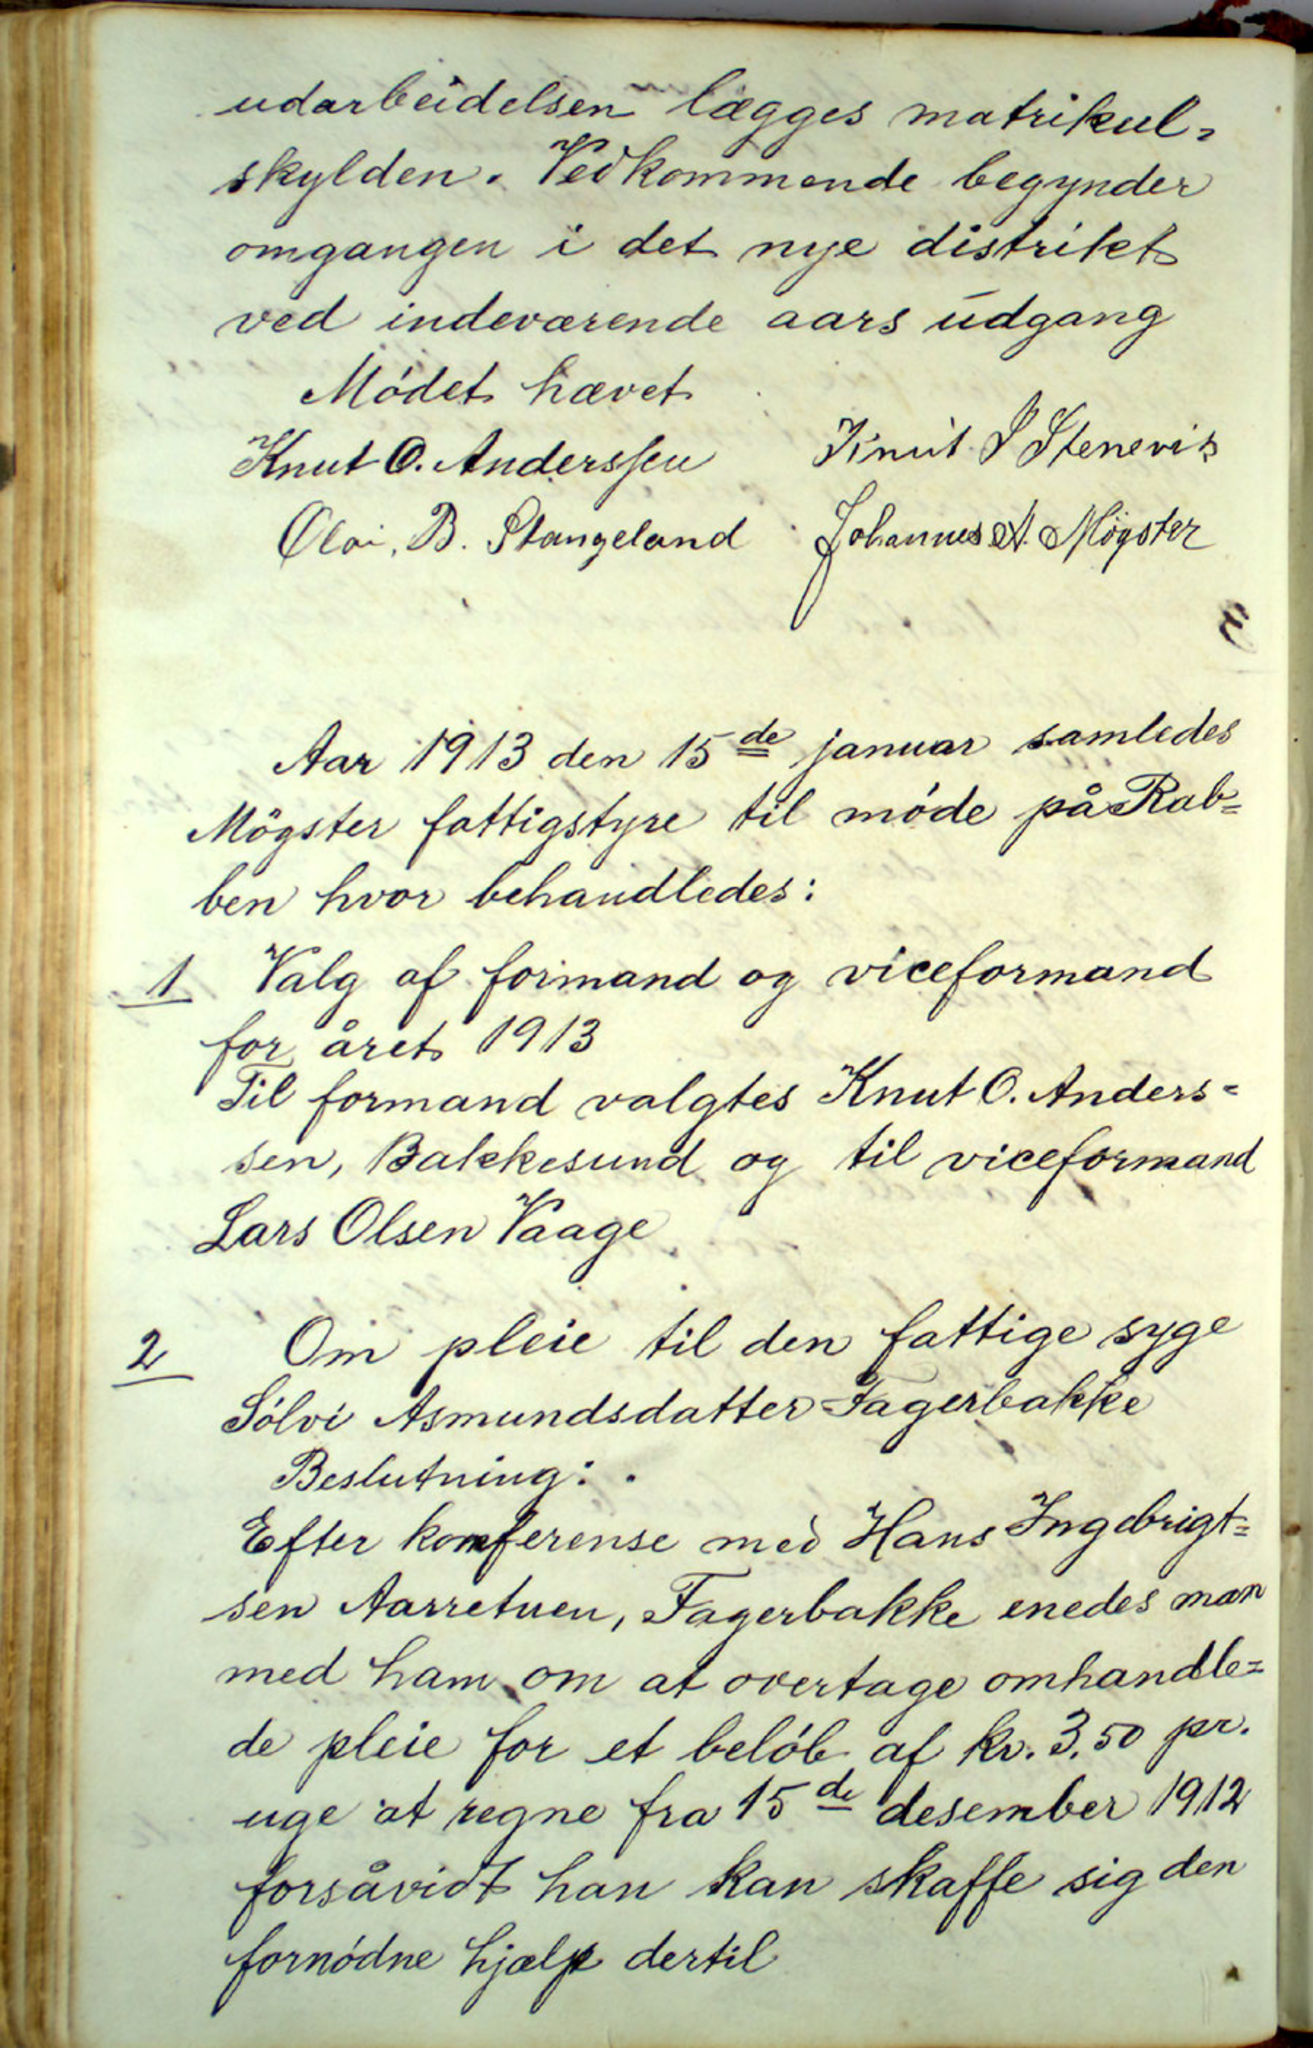 udarbeidelsen lægges matrikul=
skylden. Vedkommende begynder
omgangen i det nye distrikt
ved indeværende aars udgang
Mødet hævet
Knut O. Anderssen Knut J Stenevik
Olai. B. Stangeland Johannes A. Møgster
Aar 1913 den 15de januar samledes
Møgster fattigstyre til møde på Rab=
ben hvor behandledes:
1 Valg af formand og viceformand
for året 1913
Til formand valgtes Knut O. Anders=
sen, Bakkesund og til viceformand
Lars Olsen Vaage
2 Om pleie til den fattige syge
Sølvi Asmundsdatter Fagerbakke
Beslutning:
Efter konferense med Hans Ingebrigt=
sen Aarretuen, Fagerbakke enedes man
med ham om at overtage omhandle=
de pleie for et beløb af kr. 3.50 pr.
uge at regne fra 15de desember 1912
forsåvidt han kan skaffe sig den
fornødne hjælp dertil